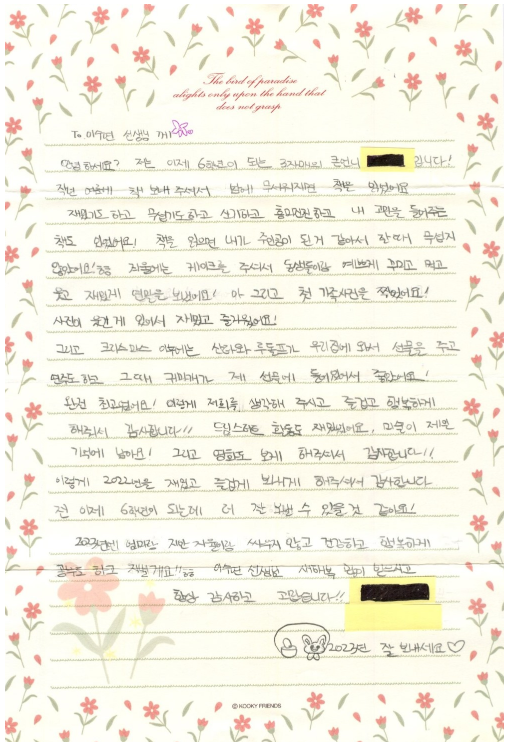 The bird of paradise
alights only upon the hand that
does not grasp
To 이수련 선생님 께!
안녕하세요? 저는 이제 6학년이 되는 3자매의 큰언니 입니다!
작년 여름에 책 보내 주셔서 밤에 무서워지면 책을 읽었어요
재밌기도 하고 무섭기도하고 신기하고 흥미진진하고 내 고민을 들어주는
책도 있었어요! 책을 읽으면 내가 주인공이 된 거 같아서 잘 때 무섭지
않았어요!ㅎㅎ 겨울에는 케이크를 주셔서 동생들이랑 예쁘게 꾸미고 먹고
웃고 재밌게 연말을 보냈어요! 아 그리고 첫 가족사진을 찍었어요!
사진이 웃긴게 있어서 재밌고 즐거웠어요!
그리고 크리스마스 이브에는 산타와 루돌프가 우리집에 와서 선물을 주고
연주도 하고 그때 귀마개가 제 선물에 들어있어서 좋았어요!
완전 최고였어요! 이렇게 저희를 생각해 주시고 즐겁고 행복하게
해주셔서 감사합니다!! 드림스타트 활동도 재밌었어요, 미술이 제일
기억에 남아요! 그리고 영화도 보게 해주셔서 감사합니다!!
이렇게 2022년을 재밌고 즐겁게 보내게 해주셔서 감사합니다
전 이제 6학년이 되는데 더 잘 보낼 수 있을것 같아요!
2023년엔 엄마랑 자매들이랑 싸우지 않고 건강하고 행복하게
공부도 하고 지낼게요!!ㅎㅎ 이수련 선생님 새해복 많이 받으시고
항상 감사하고 고맙습니다!!
2023년 잘 보내세요♡
© KOOKY FRIENDS